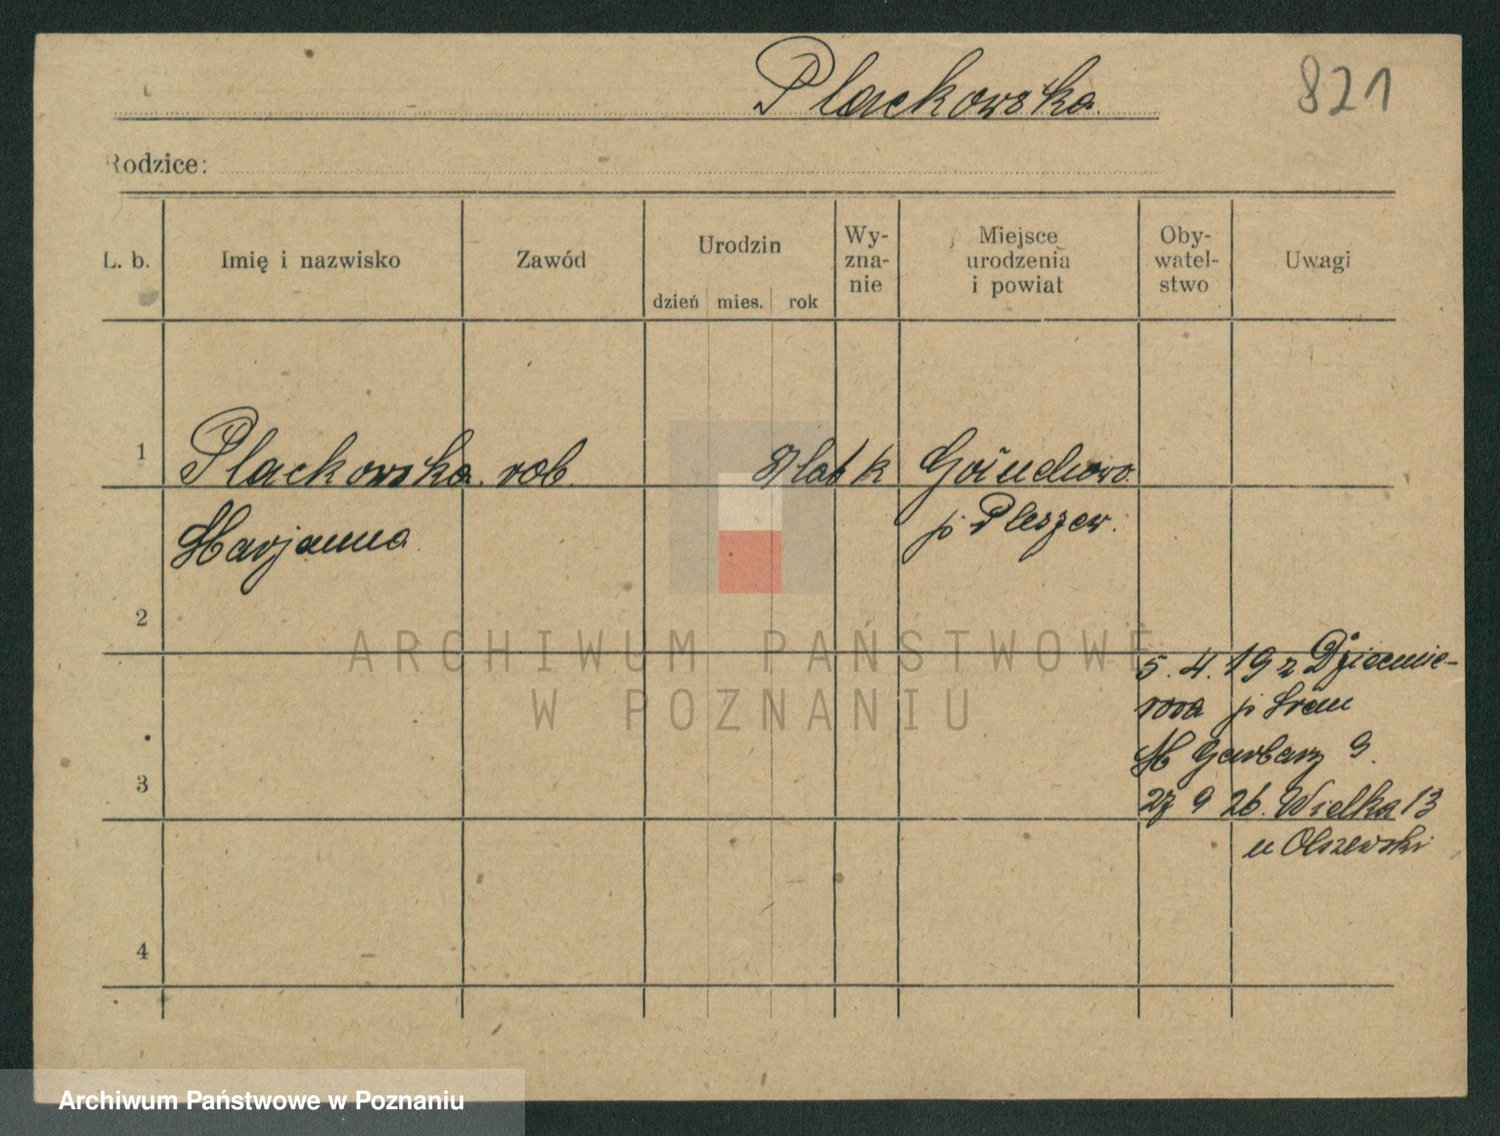 Plackowska
821
Rodzice:
L. b.
Imię i nazwisko
Zawód
Urodzin
dzień mies. rok
Wy-
zna-
nie
Miejsce
urodzenia
i powiat
Oby-
watel-
stwo
Uwagi
1
Plackowska rob. lat k
Marjanna
p Pleszew.
2
ARCHIWUM PAŃSTWOWE
W POZNANIU
5. 4. 19
p Śrem
Garbary 9.
3
27 9 26. Wielka 13
u Olszewski
4
Archiwum Państwowe w Poznaniu